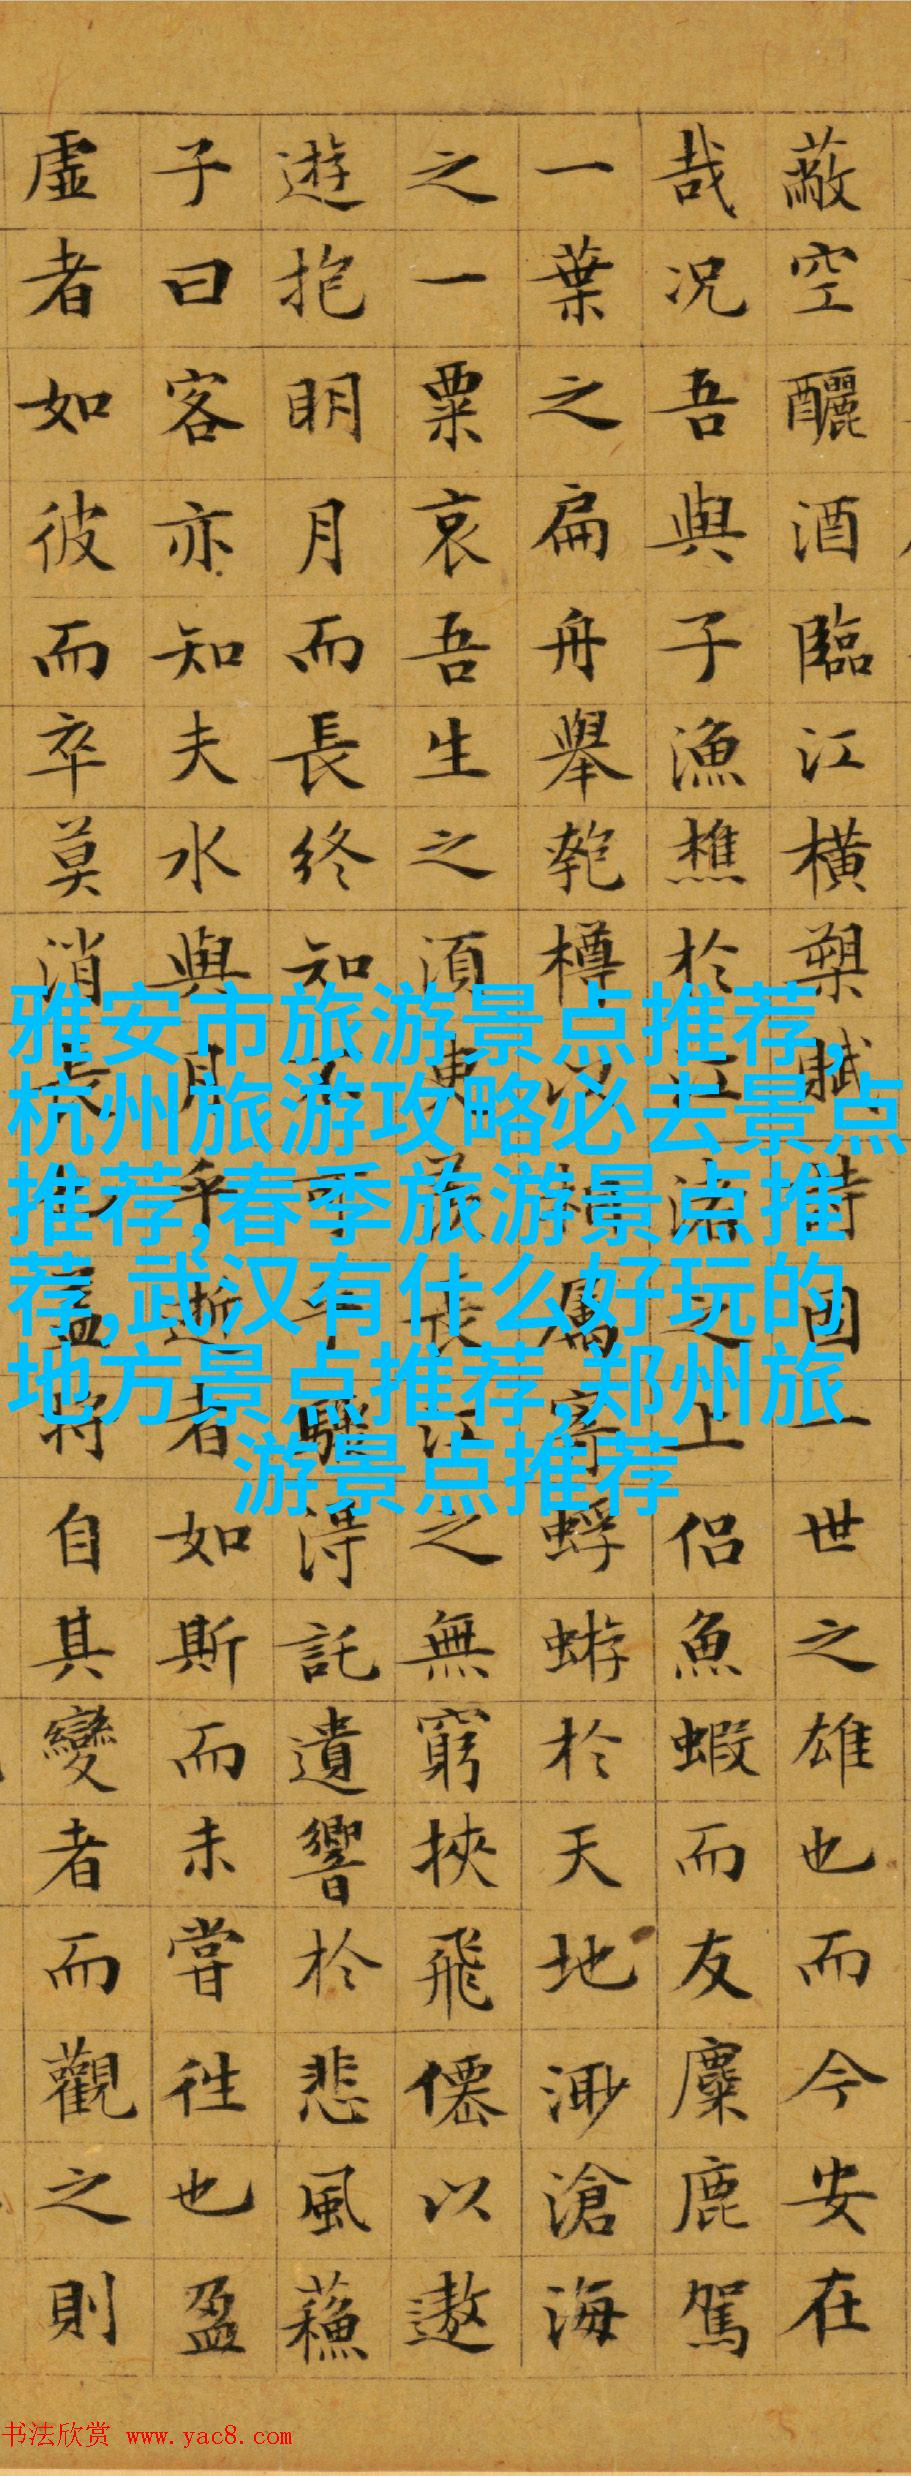 蔽空釃酒臨江橫槊賦詩固一世之雄也而今安在
哉况吾與子漁樵於江渚之上侶魚蝦而友麋鹿駕
一葉之扁舟舉匏樽以相屬寄蜉蝣於天地渺滄海
之一粟哀吾生之須臾羨長江之無窮挾飛僊以遨
遊抱明月而長終知不可乎驟得託遺響於悲風蘓
子曰客亦知夫水與月乎逝者如斯而未嘗往也盈
虛者如彼而卒莫消長也蓋將自其變者而觀之則
雅安市旅游景点推荐,
杭州旅游攻略必去景点
推荐,春季旅游景点推
荐,武汉有什么好玩的
地方景点推荐,郑州旅
游景点推荐
书法欣赏 www.yac8.com